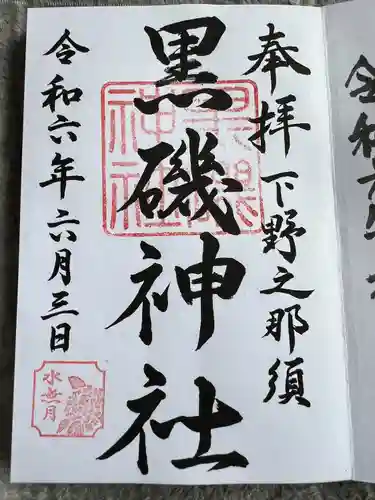 奉拝 下野之那須
黒磯神社
黒磯神社
令和六年六月三日
水無月
令和六年